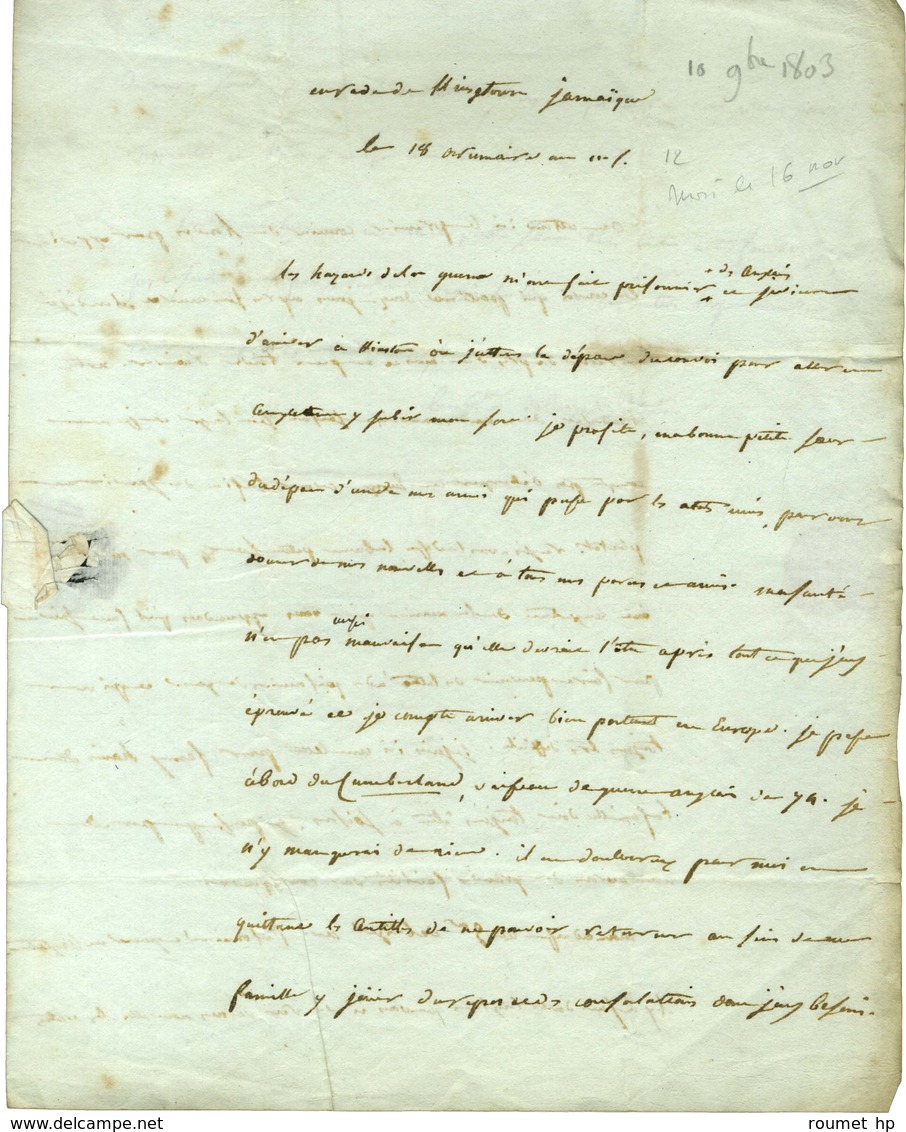 10 9bre 1803
en rade de Kingtown jamaïque
le 18 brumaire an 12
mori le 16 nov
les hazards de la guerre m'ont fait prisonnier + des anglais + et je viens
d'arriver a Kinston où j'attens le départ du convoi pour aller en
angleterre y subir mon sort. je profite, ma bonne petite sœur
du départ d'un de mes amis qui passe par les etats unis, pour vous
donner de mes nouvelles et à tous nos parens et amis. ma santé
n'est pas aussi mauvaise qu'elle devrait l'être après tout ce que j'ay
éprouvé et je compte arriver bien portant en Europe. je passe
à bord du Cumberland, vaisseau de guerre anglais de 74. je
n'y manquerai de rien. il est douloureux pour moi en
quittant les antilles de ne pouvoir retourner au sein de ma
famille y jouir du repos et des consolations dont j'ay besoin.
roumet hp